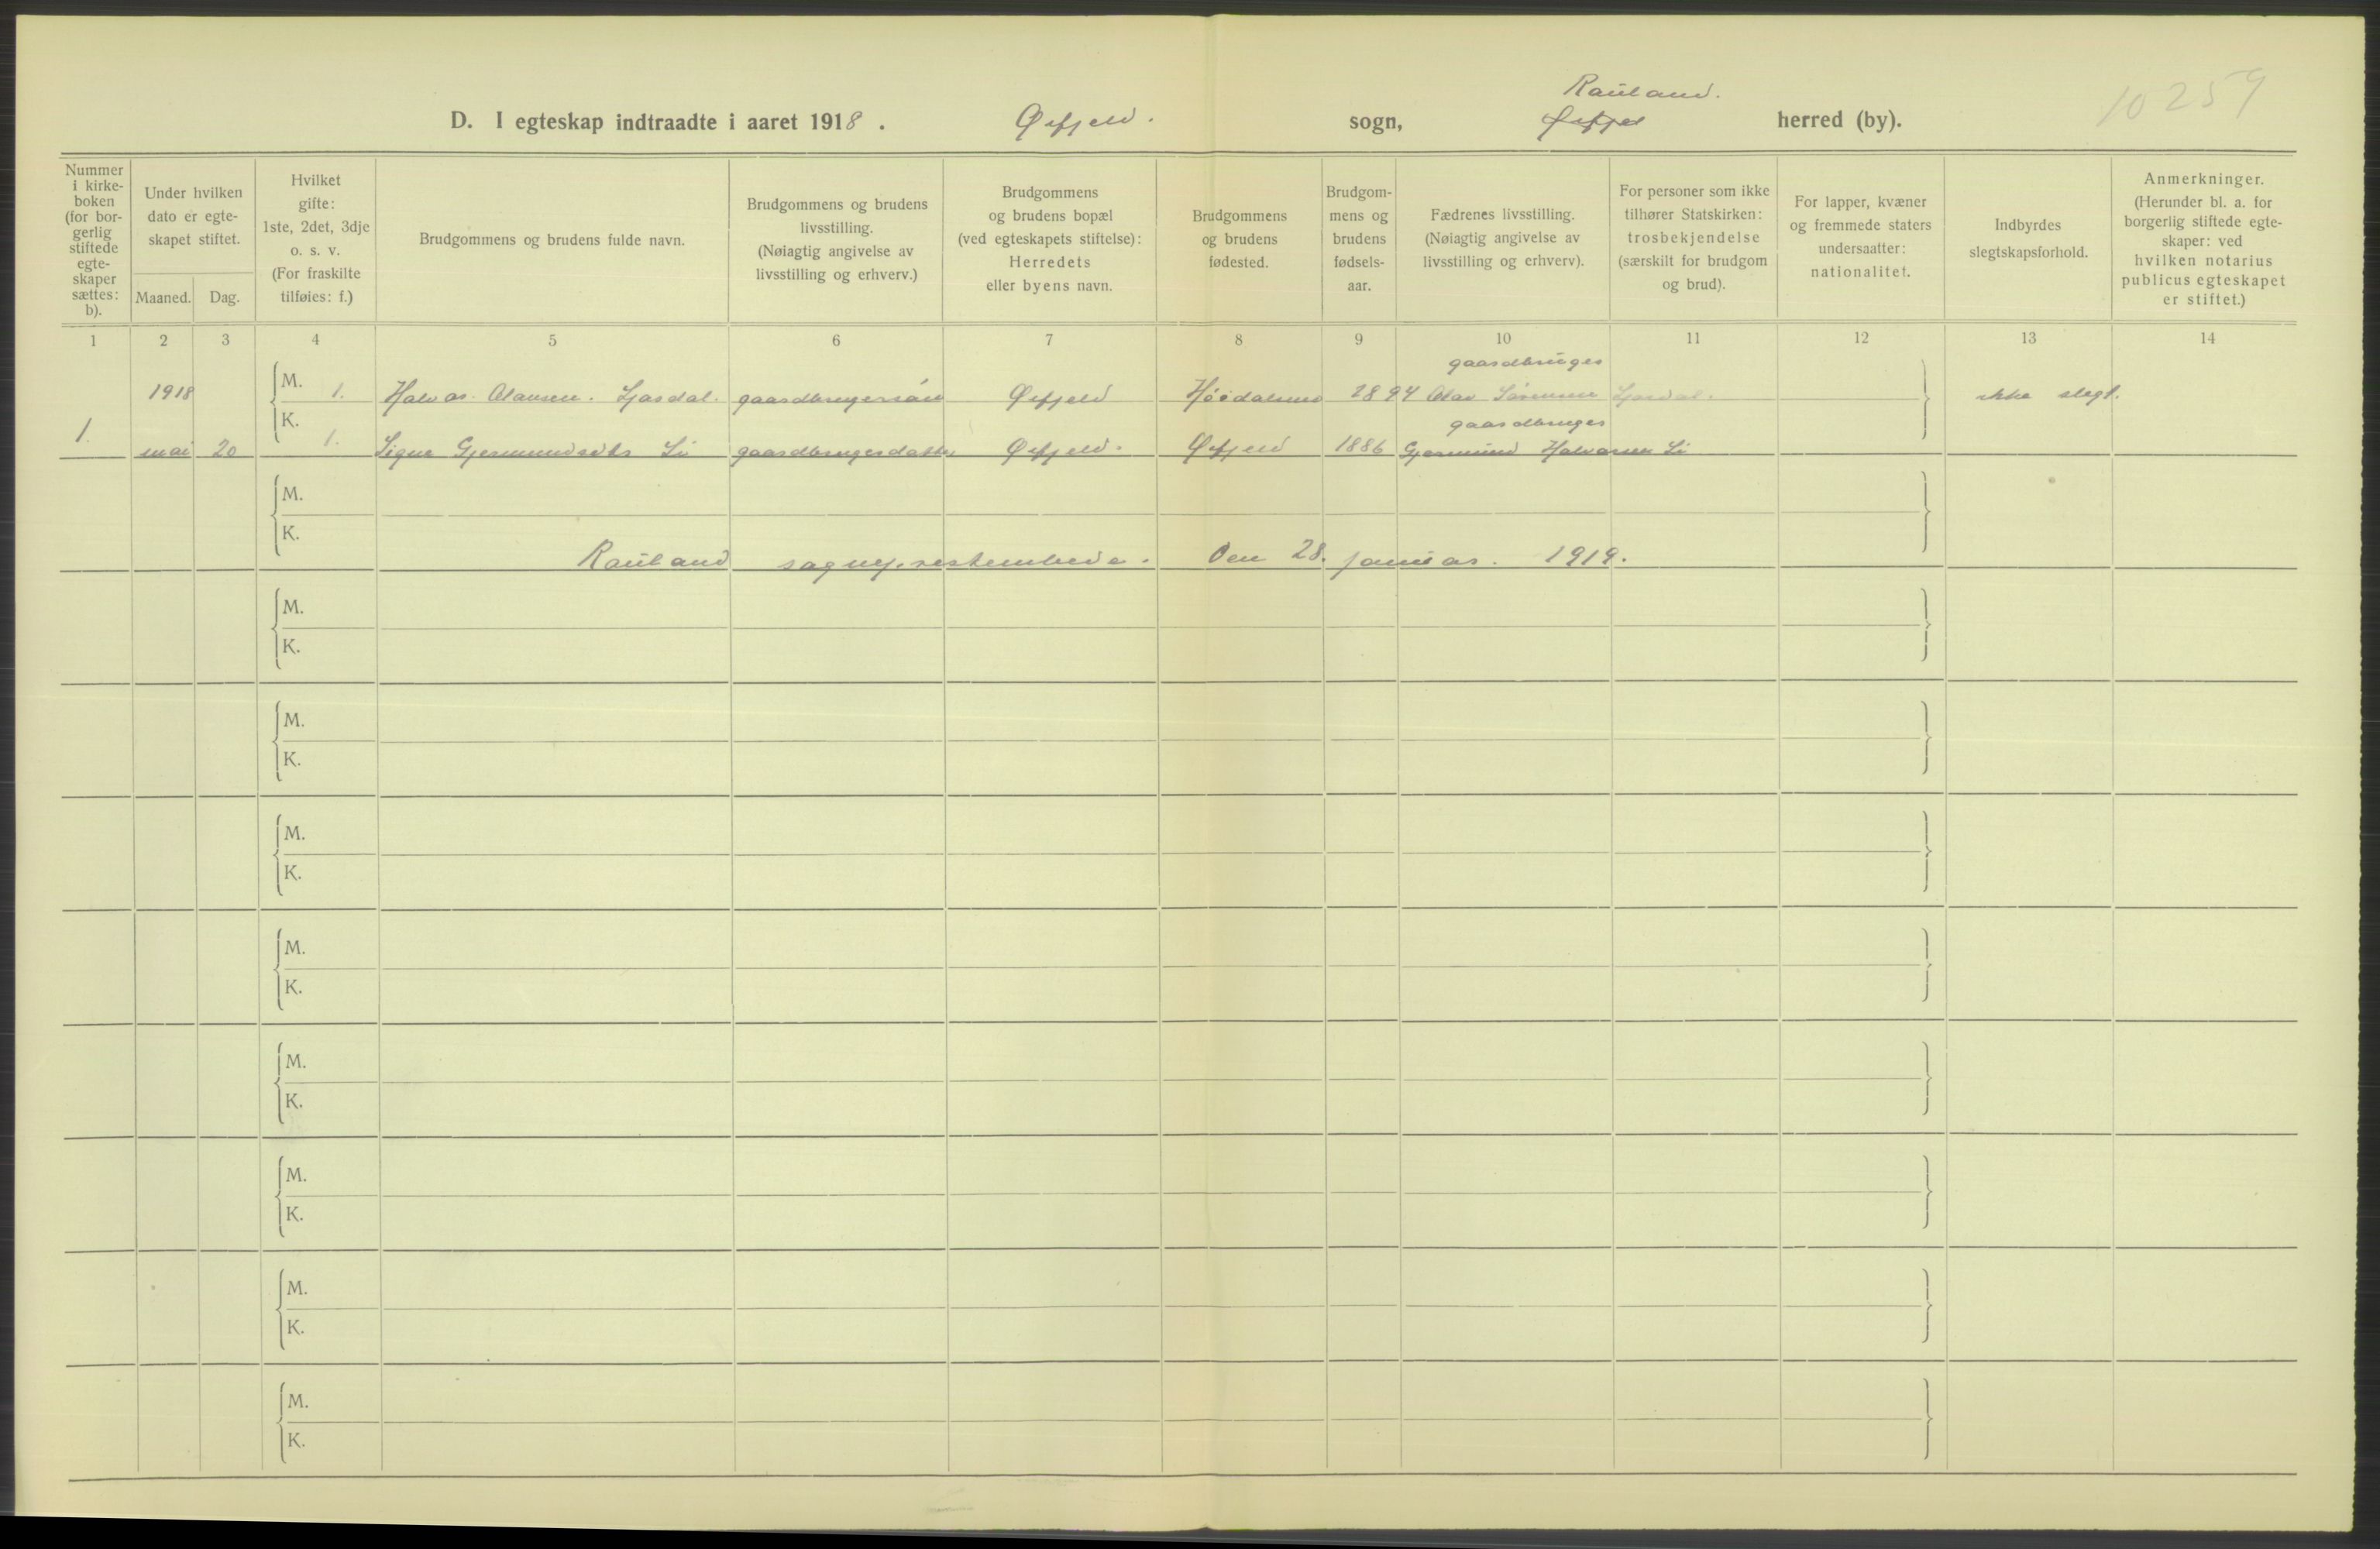 Rauland.
10259
D. I egteskap indtraadte i aaret 1918. Øifjeld. sogn, Øifjel herred (by).
Nummer i kirke-boken (for bor-gerlig stiftede egte-skaper sættes: b).
Under hvilken dato er egte-skapet stiftet.
Maaned. Dag.
Hvilket gifte: 1ste, 2det, 3dje o. s. v. (For fraskilte tilføies: f.)
Brudgommens og brudens fulde navn.
Brudgommens og brudens livsstilling. (Nøiagtig angivelse av livsstilling og erhverv.)
Brudgommens og brudens bopæl (ved egteskapets stiftelse): Herredets eller byens navn.
Brudgommens og brudens fødested.
Brudgom-mens og brudens fødsels-aar.
Fædrenes livsstilling. (Nøiagtig angivelse av livsstilling og erhverv).
For personer som ikke tilhører Statskirken: trosbekjendelse (særskilt for brudgom og brud).
For lapper, kvæner og fremmede staters undersaatter: nationalitet.
Indbyrdes slegtskapsforhold.
Anmerkninger. (Herunder bl. a. for borgerlig stiftede egte-skaper: ved hvilken notarius publicus egteskapet er stiftet.)
1 2 3 4 5 6 7 8 9 10 11 12 13 14
gaardbruger
1918 M. 1. Halvor Olavsen. Ljosdal. gaardbrugersøn Øifjeld Høidalsmo 1894 Olav Ljosdal. ikke slegt.
K.
gaardbruger
1. mai 20 1. Signe Gjermundsdtr Li gaardbrugerdatter Øifjeld. Øifjeld 1886 Gjermund Halvorsen Li
M.
K.
Rauland sogneprestembede. Den 28. januar. 1919.
M.
K.
M.
K.
M.
K.
M.
K.
M.
K.
M.
K.
M.
K.
M.
K.